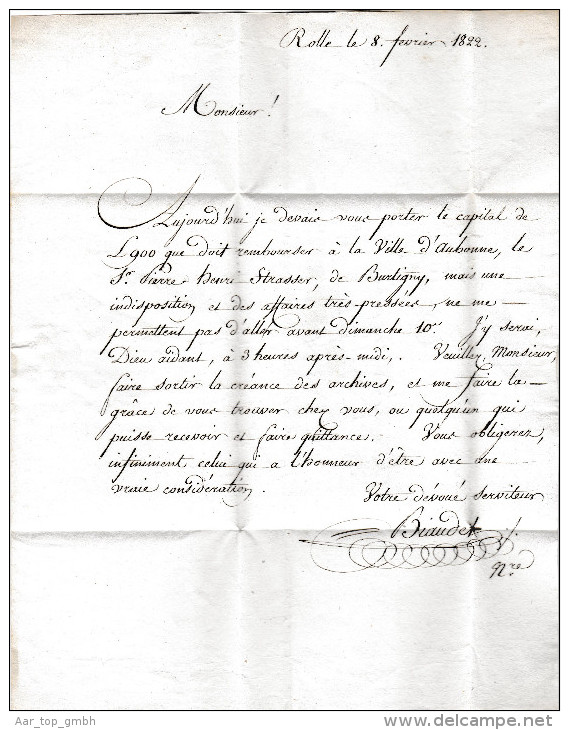 Rolle le 8. fevrier 1822.
Monsieur!
Aujourd'hui je devais vous porter le capital de
L900 que doit rembourser à la Ville d'Aubonne, le
Sr. Pierre Henri Strasser, de Burtigny, mais une
indisposition et des affaires très-pressées, ne me
permettent pas d'aller avant dimanche 10e. J'y serai,
Dieu aidant, à 3 heures après-midi. Veuillez, Monsieur,
faire sortir la créance des archives, et me faire la
grâce de vous trouver chez vous, ou quelqu'un qui
puisse recevoir et faire quittance. Vous obligerez,
infiniment celui qui a l'honneur d'être avec une
vraie considération.
Votre dévoué serviteur
Biaudet
Nre
Aar_top_gmbh
delcampe.net